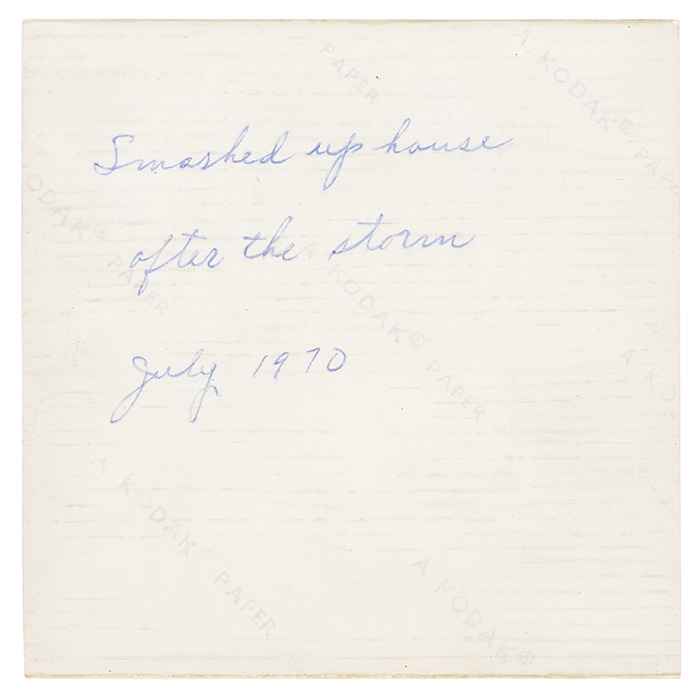 Smashed up house
after the storm
July 1970
PAPER
A KODAK® PAPER
KODAK® PAPER
A KODAK® PAPER
A KO
A KODAK® PAPER
A KODAK®